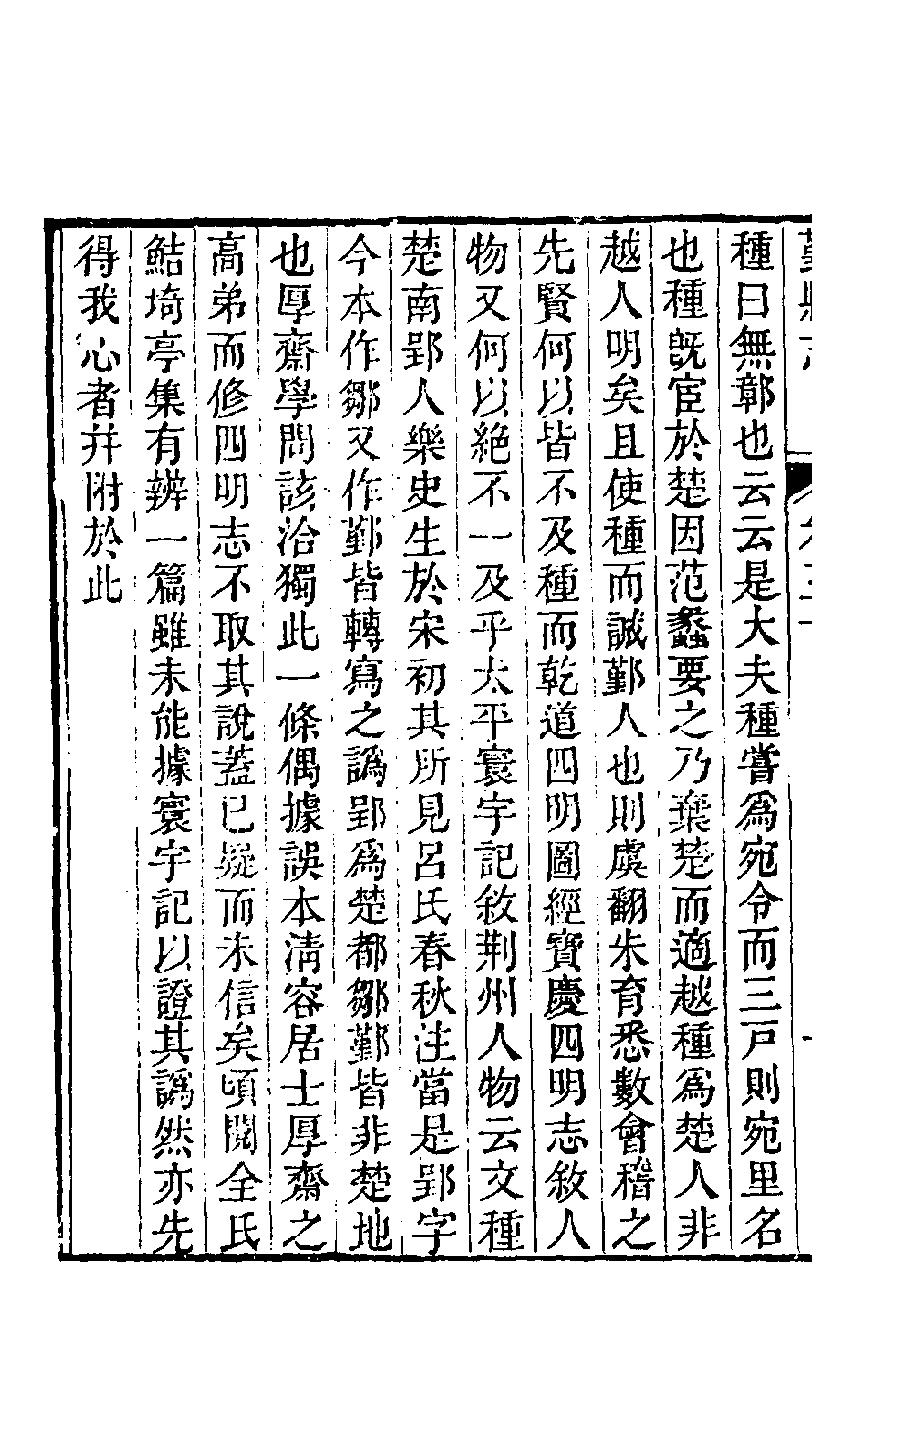 種曰無鄣也云云是大夫種嘗爲宛令而三戸則宛里名
也種旣宦於楚因范蠡要之乃棄楚而適越種爲楚人非
越人明矣且使種而誠鄞人也則虞翻朱育悉數會稽之
先賢何以皆不及種而乾道四明圖經寶慶四明志敘人
物又何以絕不一及乎太平寰宇記敘荆州人物云文種
楚南郢人樂史生於宋初其所見呂氏春秋注當是郢字
今本作鄒又作鄞皆轉寫之譌郢爲楚都鄒鄞皆非楚地
也厚齋學問該洽獨此一條偶據誤本淸容居士厚齋之
高弟而修四明志不取其說蓋已疑而未信矣頃閱全氏
鮚埼亭集有辨一篇雖未能據寰宇記以證其譌然亦先
得我心者幷附於此